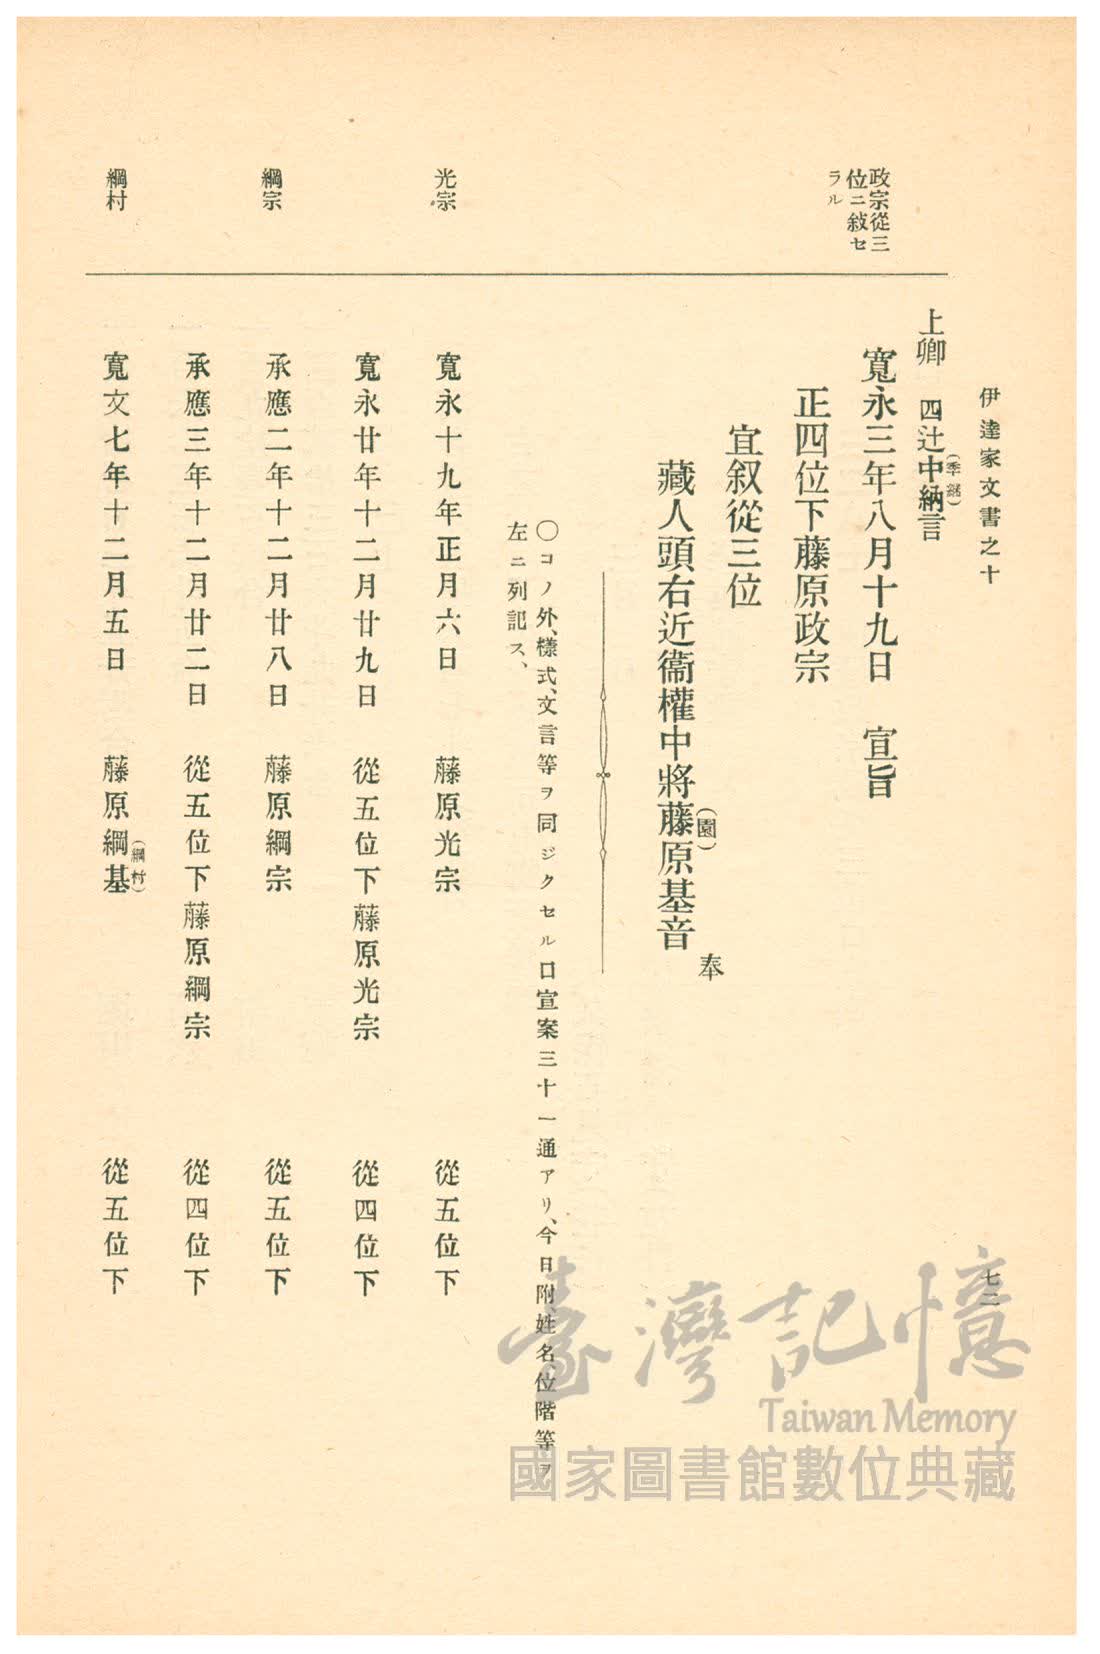 伊達家文書之十
七二
政宗從三
位ニ敍セ
ラル
上卿　四辻中納言
寬永三年八月十九日　宣旨
正四位下藤原政宗
宜叙從三位
藏人頭右近衞權中將藤原基音奉
（園）
〇コノ外、樣式、文言等ヲ同ジクセル口宣案三十一通アリ、今日附、姓名、位階等ヲ
左ニ列記ス、
光宗
寬永十九年正月六日　藤原光宗　從五位下
寬永廿年十二月廿九日　從五位下藤原光宗　從四位下
綱宗
承應二年十二月廿八日　藤原綱宗　從五位下
承應三年十二月廿二日　從五位下藤原綱宗　從四位下
綱村
寬文七年十二月五日　藤原綱基　從五位下
（綱村）
臺灣記憶
Taiwan Memory
國家圖書館數位典藏